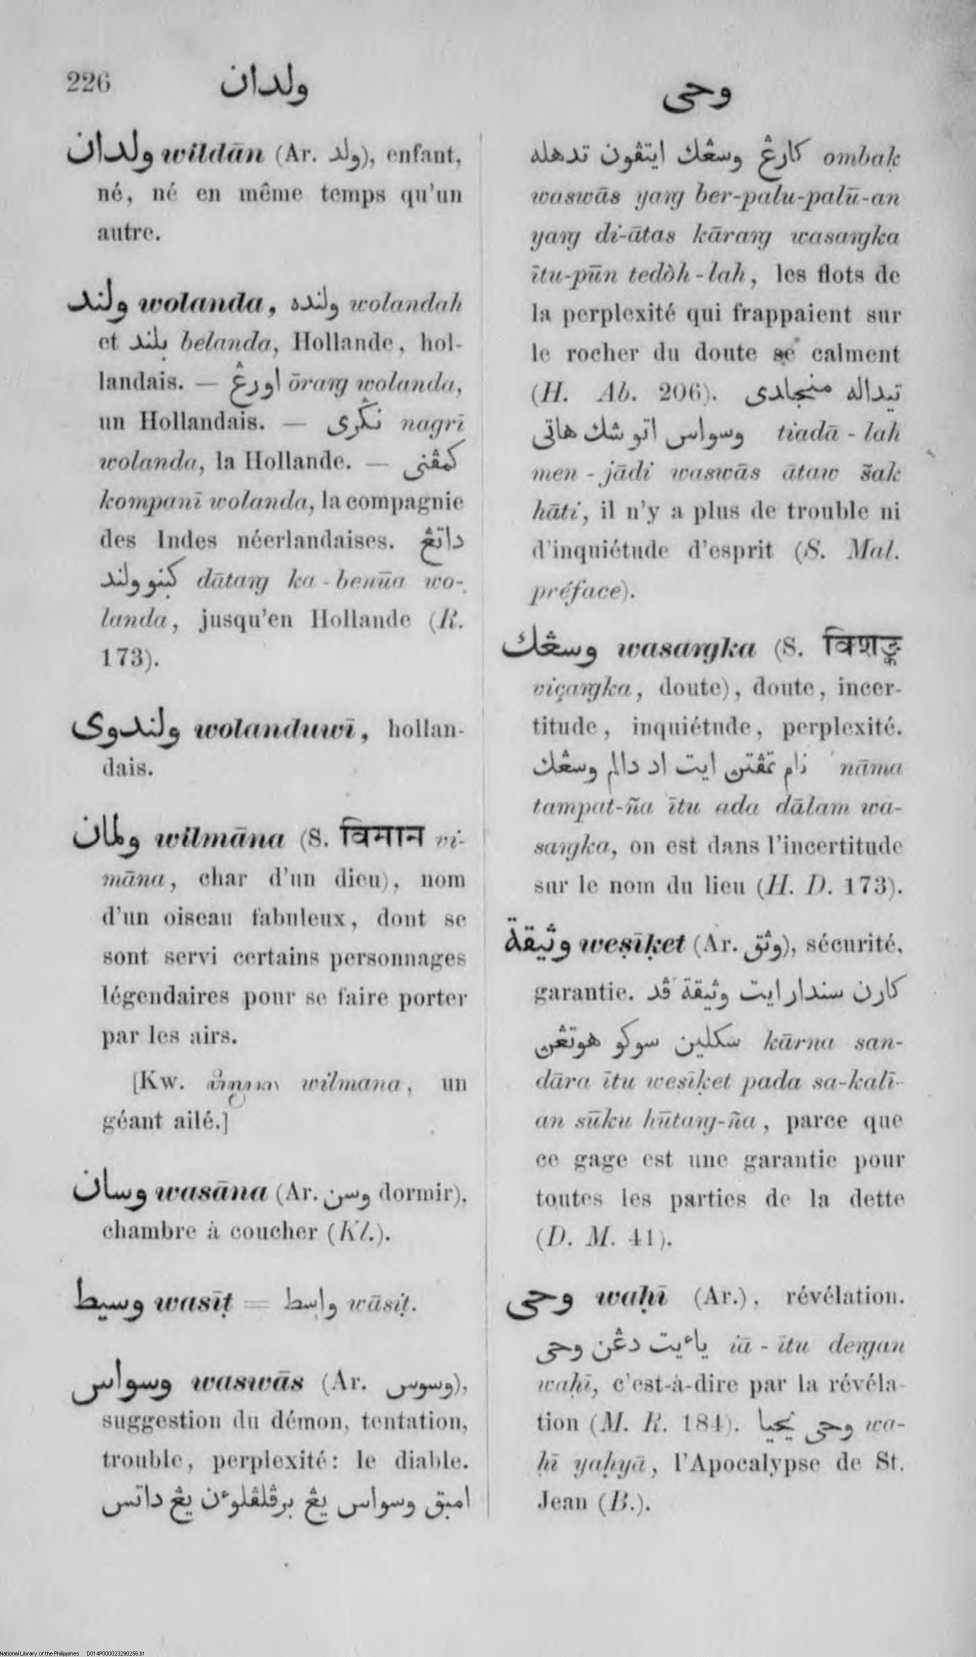 226
ولدان
وحى
ولدان wildān (Ar. ولد), enfant,
né, né en même temps qu'un
autre.
ولند wolanda, ولنده wolandah
et بلند belanda, Hollande, hol-
landais. — اورڠ ōraŋ wolanda,
un Hollandais. — نݢرى nagrī
wolanda, la Hollande. — كمڤنى
kompanī wolanda, la compagnie
des Indes néerlandaises. داتڠ
كبنو ولند dātaŋ ka-benūa wo-
landa, jusqu'en Hollande (R.
173).
ولندوى wolanduwī, hollan-
dais.
ولمان wilmāna (S. विमान vi-
māna, char d'un dieu), nom
d'un oiseau fabuleux, dont se
sont servi certains personnages
légendaires pour se faire porter
par les airs.
[Kw. wilmana, un
géant ailé.]
وسان wasāna (Ar. وسن dormir),
chambre à coucher (Kl.).
وسيط wasīṭ = واسط wāsiṭ.
وسواس waswās (Ar. وسوس),
suggestion du démon, tentation,
trouble, perplexité: le diable.
امبق وسواس يڠ برڤلڤلوءن يڠ داتس
كارڠ وسڠك ايتڤون تدهله ombaḳ
waswās yaŋ ber-palu-palū-an
yaŋ di-ātas kāraŋ wasaŋka
ītu-pūn tedòh-lah, les flots de
la perplexité qui frappaient sur
le rocher du doute se calment
(H. Ab. 206). تيداله منجادى
وسواس اتو شك هاتى tiadā-lah
men-jādi waswās ātaw šak
hāti, il n'y a plus de trouble ni
d'inquiétude d'esprit (S. Mal.
préface).
وسڠك wasaŋka (S. विशङ्क
viçaŋka, doute), doute, incer-
titude, inquiétude, perplexité.
نام تمڤتن ايت اد دالم وسڠك nāma
tampat-ña ītu ada dālam wa-
saŋka, on est dans l'incertitude
sur le nom du lieu (H. D. 173).
وثيقة weṣīḳet (Ar. وثق), sécurité,
garantie. كارن سندار ايت وثيقة ڤد
سكلين سوكو هوتڠن kārna san-
dāra ītu wesīḳet pada sa-kalī-
an sūku hūtaŋ-ña, parce que
ce gage est une garantie pour
toutes les parties de la dette
(D. M. 41).
وحى waḥī (Ar.), révélation.
ياءيت دڠن وحى iā-ītu deŋan
waḥī, c'est-à-dire par la révéla-
tion (M. R. 184). وحى يحيا wa-
ḥī yaḥyā, l'Apocalypse de St.
Jean (B.).
National Library of the Philippines